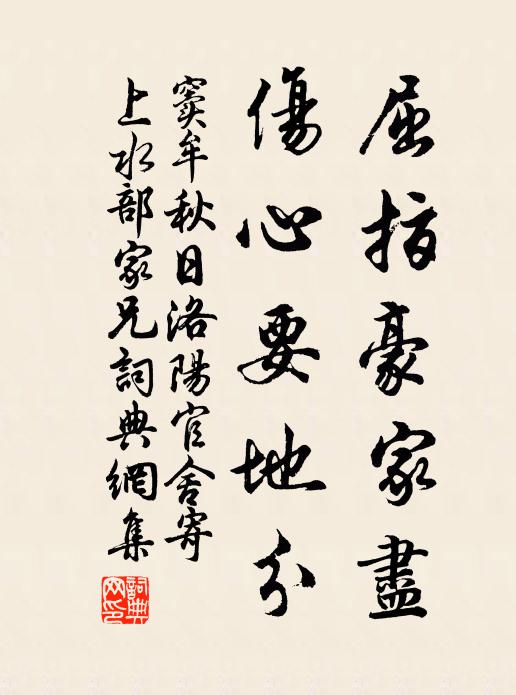 屈指豪家盡
傷心要地分
竇牟秋日洛陽官舍寄
上水部家兄詞典網集
詞典網印